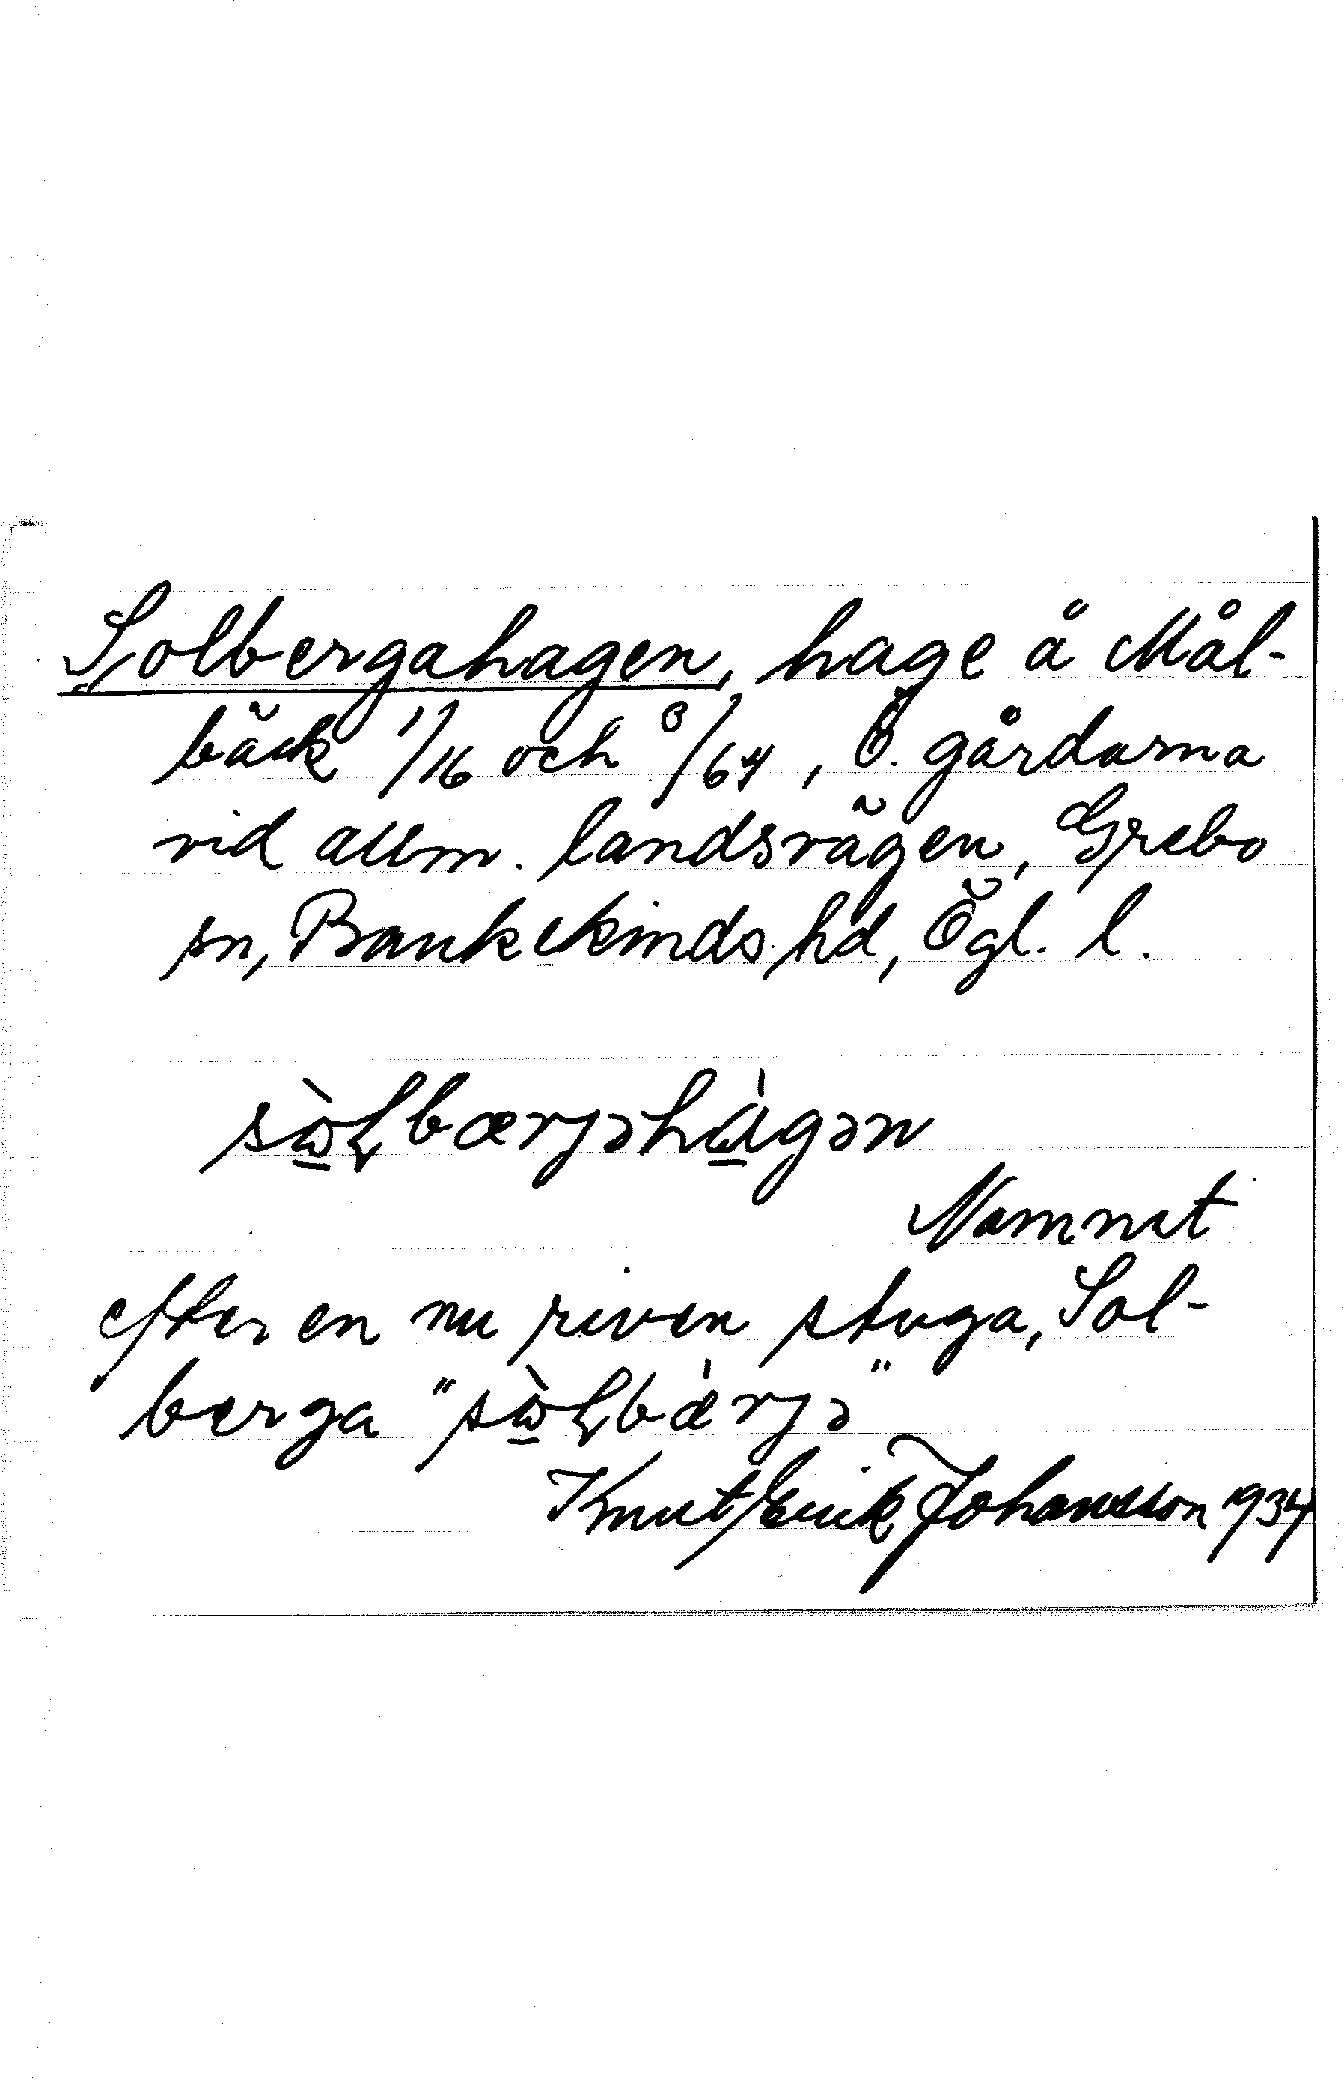 Solbergahagen, hage å Mål-
bäck 1/16 och 3/64, Ö. gårdarna
vid allm. landsvägen, Grebo
sn, Bankekinds hd, Ögl. l.
sɷ̀ɽbærjəhàgən
Namnet
efter en nu riven stuga, Sol-
berga "sɷ̀ɽbæ̀rjə"
Knut Erik Johansson 1934